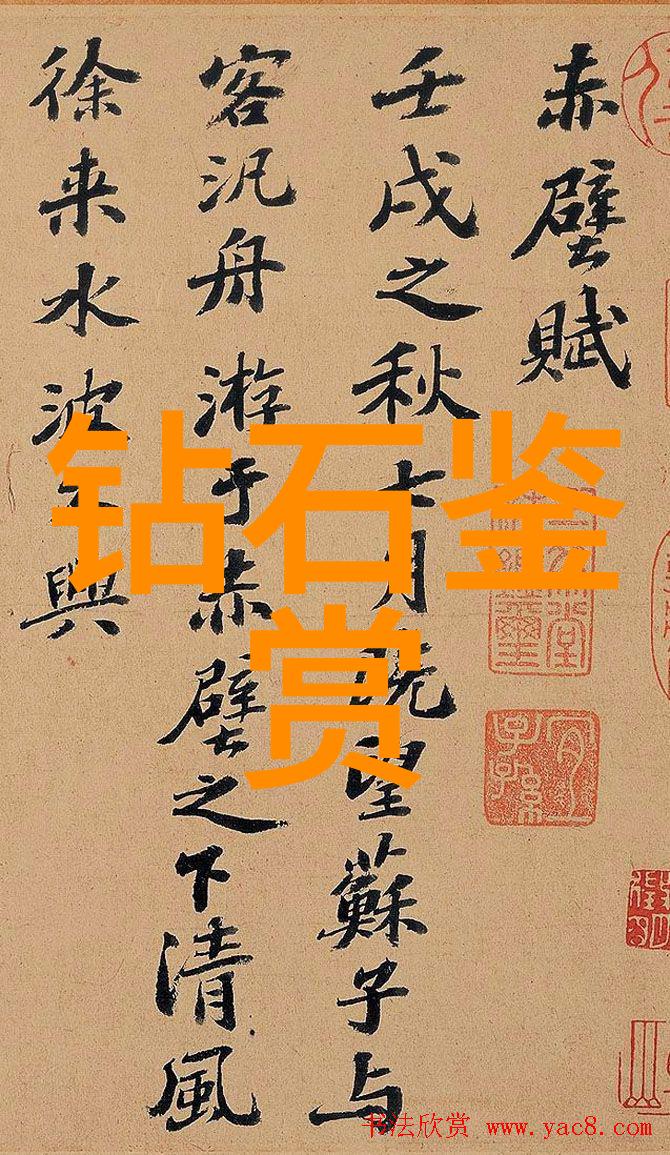 赤壁賦
壬戌之秋七月既望蘇子与
客汎舟游于赤壁之下清風
徐来水波不興
钻石鉴
赏
书法欣赏 www.yac8.com